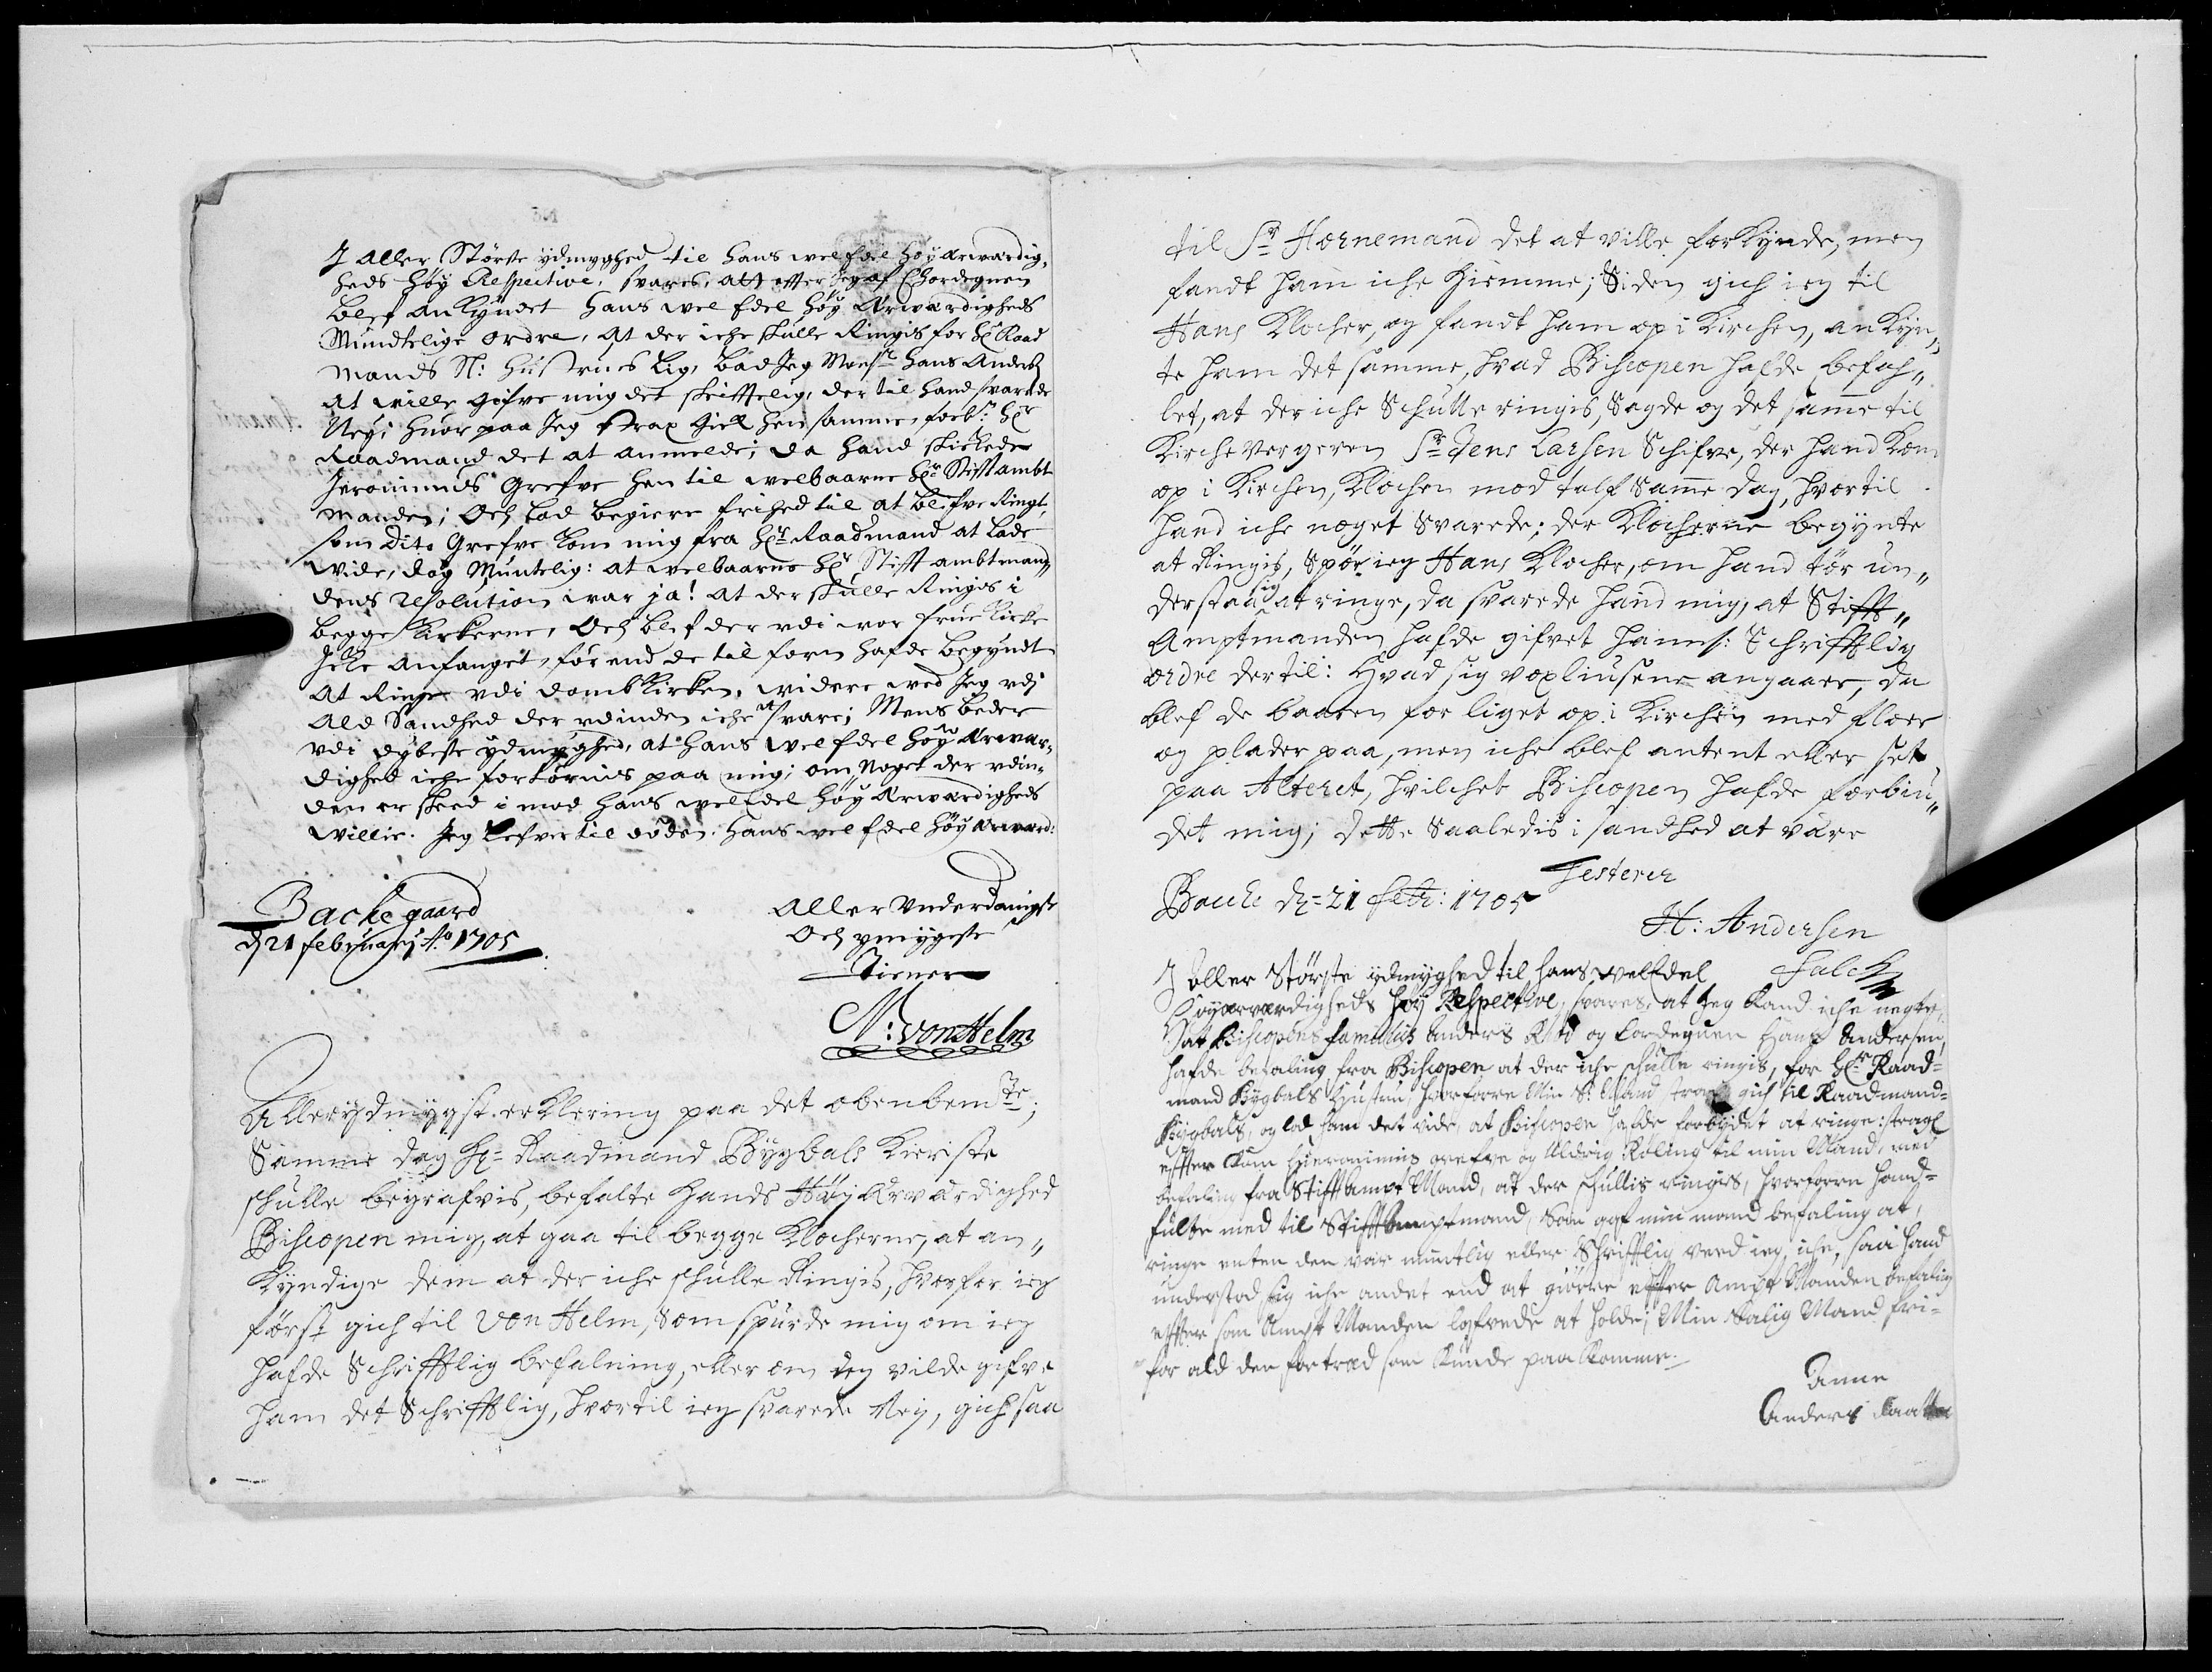 I aller Störste ydmyghed til hans wel Edel höyærwærdig,
heds höy Respective, svares, att efter Jeg af Chordegnen
blef ankyndet hans wel Edel höy Ærwærdigheds
Mundtelige ordre, At der iche skulle Ringis for Hr Raad
mands N: Hustrues lig, bad Jeg Monsr Hans Anders
at wille gifve mig det skrifftelig, der til hand svarede
Ney; huor paa Jeg strax Gick hen samme, forbte Hr
Raadmand det at anmelde; da hand skickede
Jeronimus Grefve hen til welbaarne Hr Stifftambt
manden; Och lod begiere frihed til at blifve Ringt,
som dito Grefve kom mig fra Hr Raadmand at lade
wide, dog Muntelig: at welbaarne Hr Stifft ambtman„
dens resolution war ja! at der skulle Ringis i
begge Kirkerne, Och blef der udi wor frue Kirke
Icke anfanget, för end de til forn hafde begyndt
at Ringe udi domb Kirken, widere wed Jeg udj
ald Sandhed der udinden iche at svare; Mens beder
udi dybeste ydmyghed, at hans wel Edel höy Ærwær„
dighed iche fortörnis paa mig; om Noget der udin„
den er skeed i mod hans wel Edel höy Ærwærdigheds
willie. Jeg Lefver til döden. Hans wel Edel höy Ærwærd:
Backegaard
d 21 februarij Ao 1705
Aller Underdanigste
Och ymygeste
Tiener
N: von Helm
Allerydmygst erklering paa det obenbemte;
Samme dag Hr Raadmand Bygbals Kieriste
skulle begrafvis, befalte Hands Höy Ærværdighed
Biscopen mig, at gaa til begge Klocherne, at an„
kyndige dem at der iche skulle Ringis, hvorfor ieg
först gich til Von Helm, som spurde mig om ieg
hafde Schrifftlig befalning, eller om Jeg vilde gifve
ham det Schrifftlig, hvortil ieg svarede Ney, gich saa
til Sr Hornemand det at ville forkynde, men
fandt ham iche hiemme; Siden gich ieg til
Hans Klocher, og fandt ham op i Kirchen, ankyn„
te ham det samme, hvad Biscopen hafde befah„
let, at der iche Schulle ringis, Sagde og det same til
Kirchevergeren Sr Jens Larsen Schifve, der hand kom
op i Kirchen, Klochen mod talf Same dag, hvortil
hand iche noget Svarede; der Klocherne begynte
at Ringis, Spör ieg Hans Klocher, om hand tör un„
derstaa sig at ringe, da svarede hand mig, at Stifft„
Amptmanden hafde gifvet hannem Schrifftlig
ordre dertil: Hvad sig voxliusene angaaer, da
blef de baaren for liget op i Kirchen med floer
og plader paa, men iche blef antent eller sett
paa Alteret, hvilchet Biscopen hafde forbiu„
det mig; dette Saaledis i sandhed at være
Testerer
Bacche d: 21 febr: 1705
H: Andersen
Falch
I aller Störste ydmyghed til hans wel Edel
Höyærværdigheds höy Respective, svares, at Jeg kand iche negte,
at Biscopens famulus Anders og Cordegnen Hans Andersen,
hafde befaling fra Biscopen at der iche skulle ringis, for Hr Raad=
mand Bygbals Hustru, hvorforre Min S: Mand strax gich til Raadmand=
Bygbals, og lod ham det vide, at Biscopen hafde forbydet at ringe: strax
effter kom Hieronimus Grefve og Uldrig Röling til min Mand, med
befaling fra Stifft Ampt Mand, at der skullis ringis, hvorforre hand=
fulte med til Stifft Amptmand, Som gaf min mand befaling at,
ringe enten den var muntlig eller Schrifftlig veed ieg iche, saa hand
understod sig iche andet end at giörre effter Ampt Manden befaling
effter som Ampt Manden lofvede at holde; Min Salig Mand fri=
for ald den fortred som kunde paa komme.
Anne
Anders